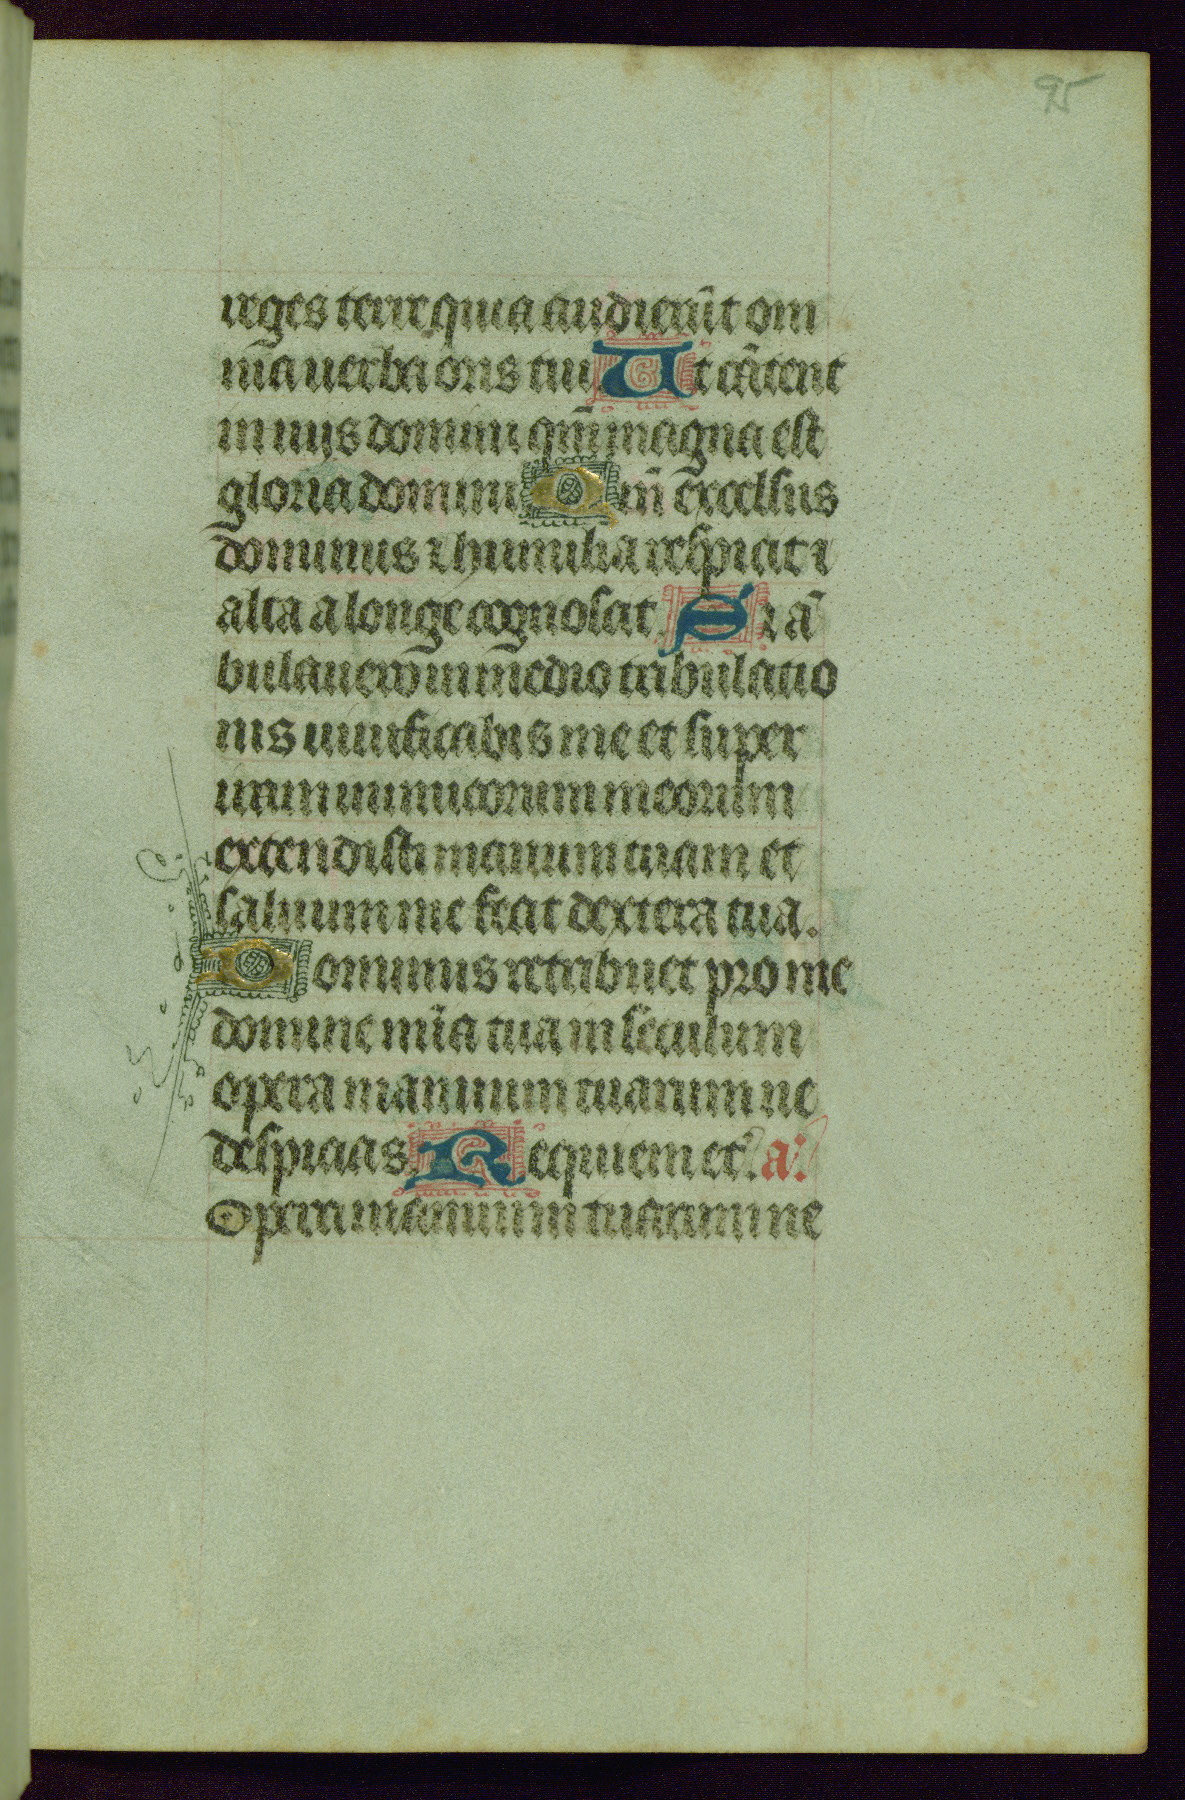 95
reges terre quia audierūt om
nia uerba oris tui Ut cātent
in uijs domini qm̄ magna est
gloria domini Qm̄ excelsus
dominus ⁊ humilia respicit ⁊
alta a longe cognoscit Si ā
bulauero in medio tribulatio
nis uiuificabis me et super
iram inimicorum meorum
extendisti manum tuam et
saluum me fecit dextera tua.
Dominus retribuet pro me
domine mīa tua in seculum
opera manuum tuarum ne
despicias. Requiem et. a:
Opera manuum tuarum ne